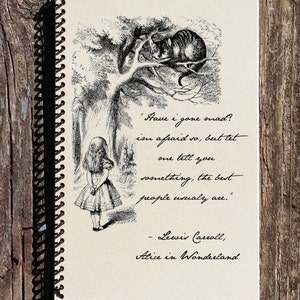 "Have i gone mad?
im afraid so, but let
me tell you
something, the best
people usualy are."
- Lewis Carroll,
Alice in Wonderland